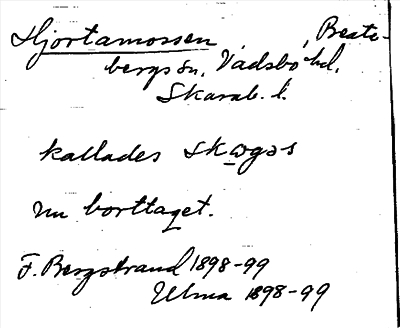 Hjortamossen, , Beate-
bergs sn, Vadsbo hd.
Skarab. l.
kallades skogəs
nu borttaget.
F. Bergstrand 1898-99
Ulma 1898-99